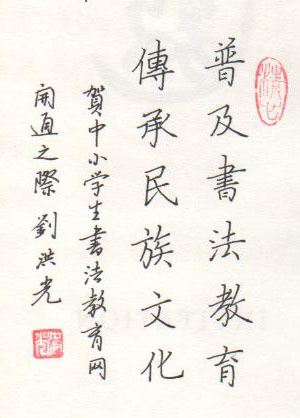 普及書法教育
傳承民族文化
賀中小学生書法教育网
開通之際 劉洪光